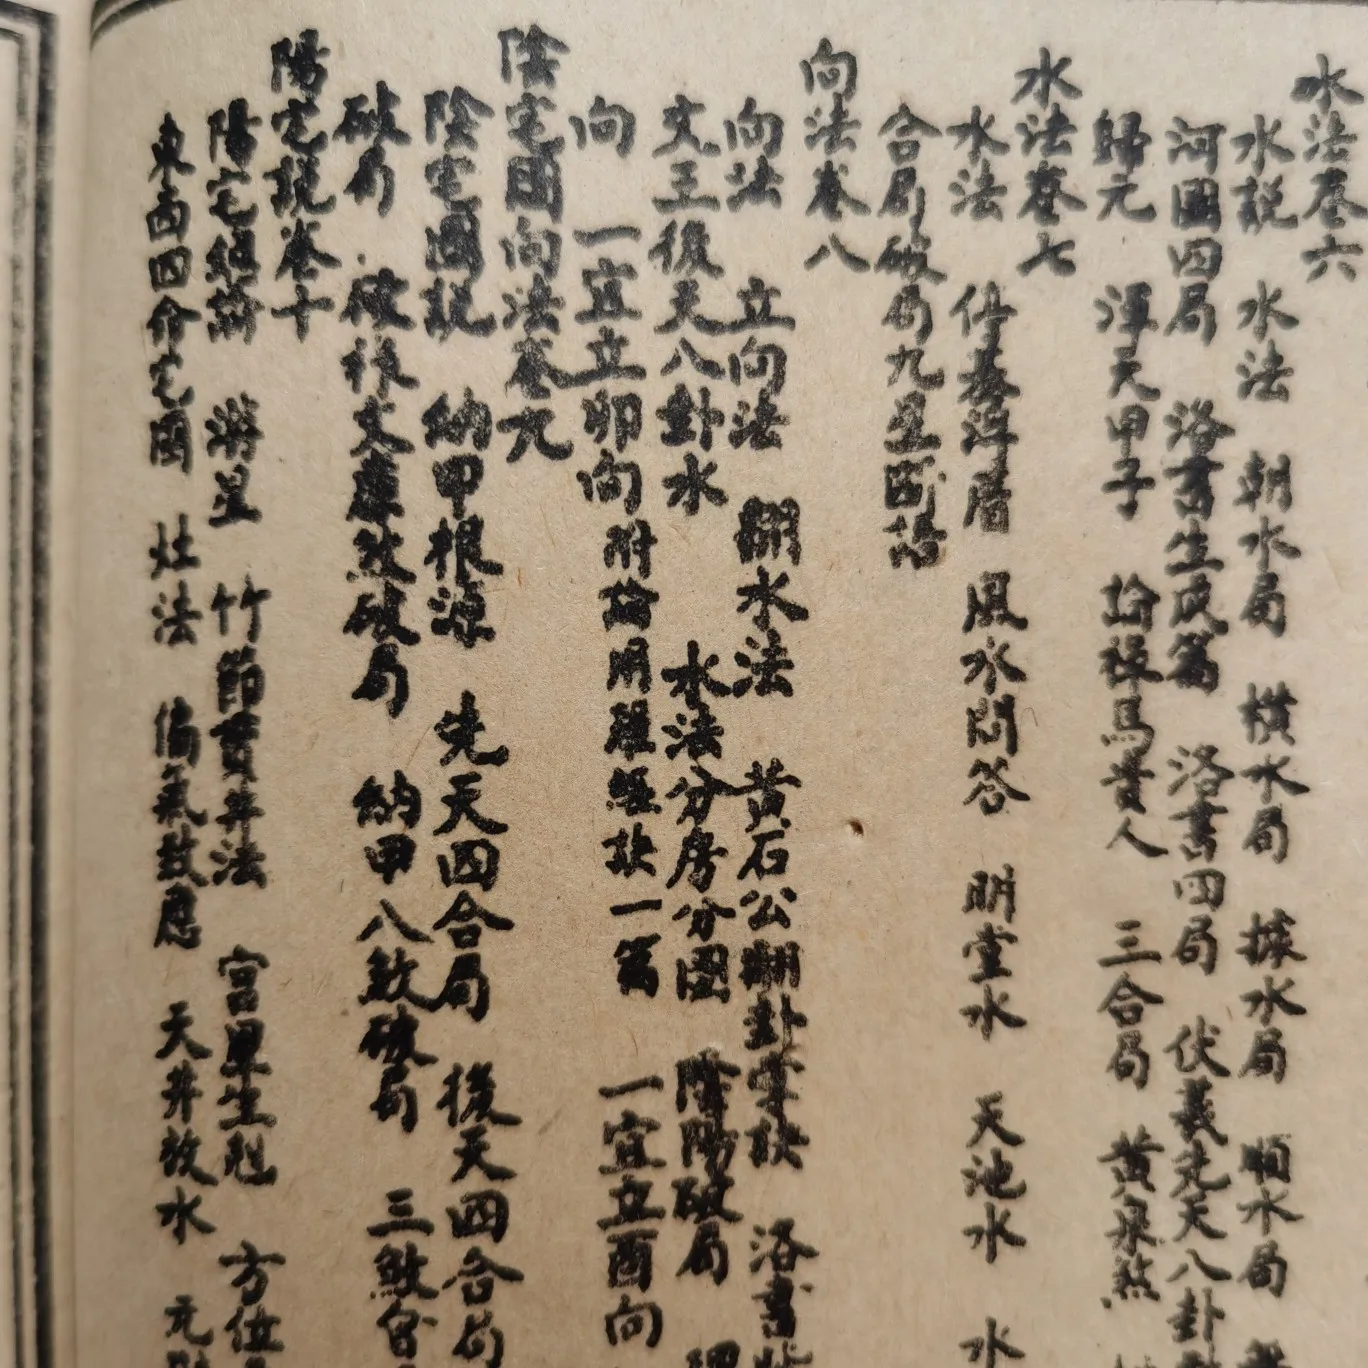 水法卷六
水説 水法 朝水局 橫水局 據水局 順水局
河圖四局 洛書生成篇 洛書四局 伏羲先天八卦
歸元 渾天甲子 論祿馬貴人 三合局 黃泉煞
水法卷七
水法 風水問答 明堂水 天池水 水
合局破局九星斷語
向法卷八
向法 立向法 翻水法 黃石公翻卦掌訣 洛書
文王後天八卦水 水法分房分圖 陰陽破局
向 一宜立卯向 附論用羅經訣一篇 一宜立酉向
陰宅圖向法卷九
陰宅圖説 納甲根源 先天四合局 後天四合局
破局 破祿文庫煞破局 納甲八煞破局 三煞
陽宅説卷十
陽宅總論 游星 竹節賁井法 宮星生剋 方位
東西四命宅圖 灶法 偏氣效應 天井放水 元